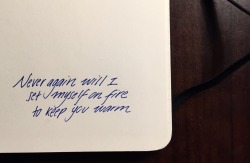 Never again will I
set myself on fire
to keep you warm